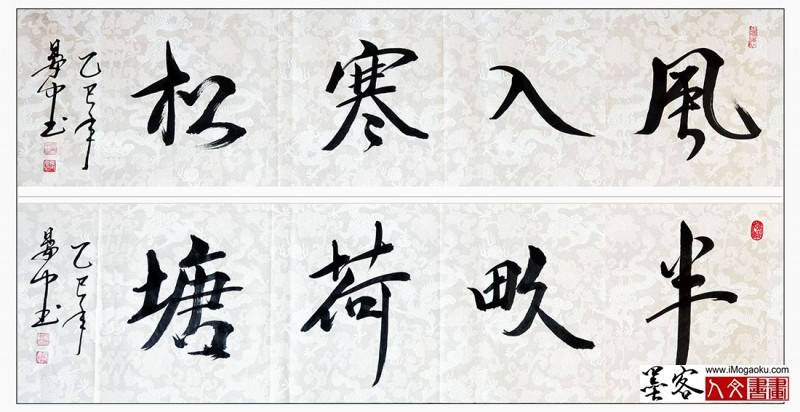 風入寒松
乙巳年
晏中书
半畝荷塘
乙巳年
晏中书
www.iMogaoku.com
墨客
人文書畫